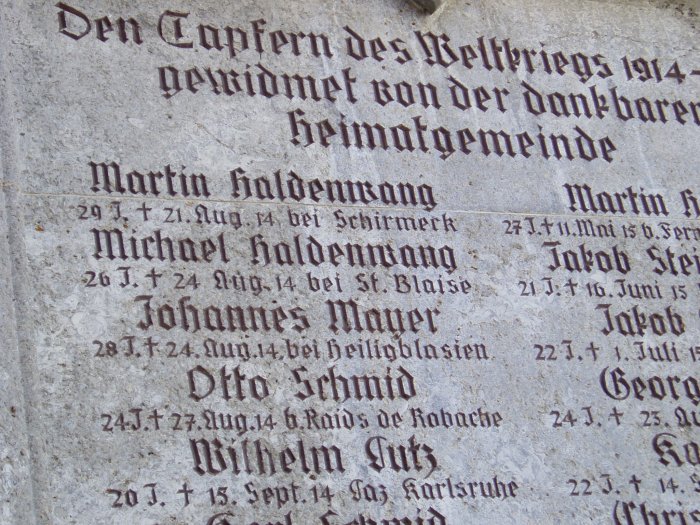 Den Tapfern des Weltkriegs 1914-
gewidmet von der dankbaren
Heimatgemeinde
Martin Haldenwang
29 J. ✝ 21. Aug. 14 bei Schirmeck
Michael Haldenwang
26 J. ✝ 24 Aug. 14 bei St. Blaise
Johannes Mayer
28 J. ✝ 24. Aug. 14. bei Heiligblasien
Otto Schmid
24 J. ✝ 27. Aug. 14 b. Raids de Robache
Wilhelm Lutz
20 J. ✝ 15. Sept. 14 Laz. Karlsruhe
Schmid
Martin H
27 J. ✝ 11. Mai 15 b.
Jakob
21 J. ✝ 16. Juni 15
Jakob
22 J. ✝ 1. Juli 15
Georg
24 J. ✝
22 J. ✝ 14.